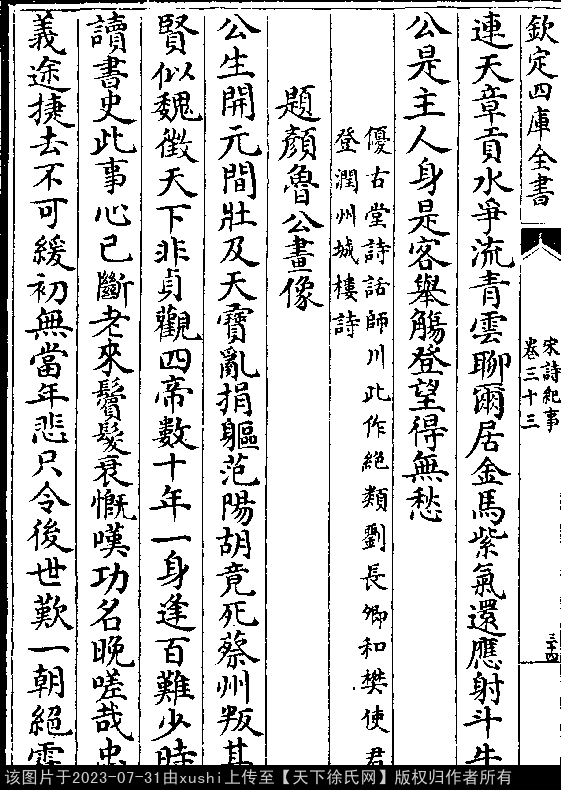 欽定四庫全書
宋詩紀事
卷三十三
三十四
連天章貢水爭流青雲聊爾居金馬紫氣還應射斗牛
公是主人身是客舉觴登望得無愁
優古堂詩話師川此作絕類劉長卿和樊使君
登潤州城樓詩
題顏魯公畫像
公生開元間壯及天寶亂捐軀范陽胡竟死蔡州叛其
賢似魏徵天下非貞觀四帝數十年一身逢百難少時
讀書史此事心已斷老來鬢髮衰慨嘆功名晚嗟哉忠
義途捷去不可緩初無當年悲只令後世歎一朝絕霛
该图片于2023-07-31由xushi上传至【天下徐氏网】版权归作者所有